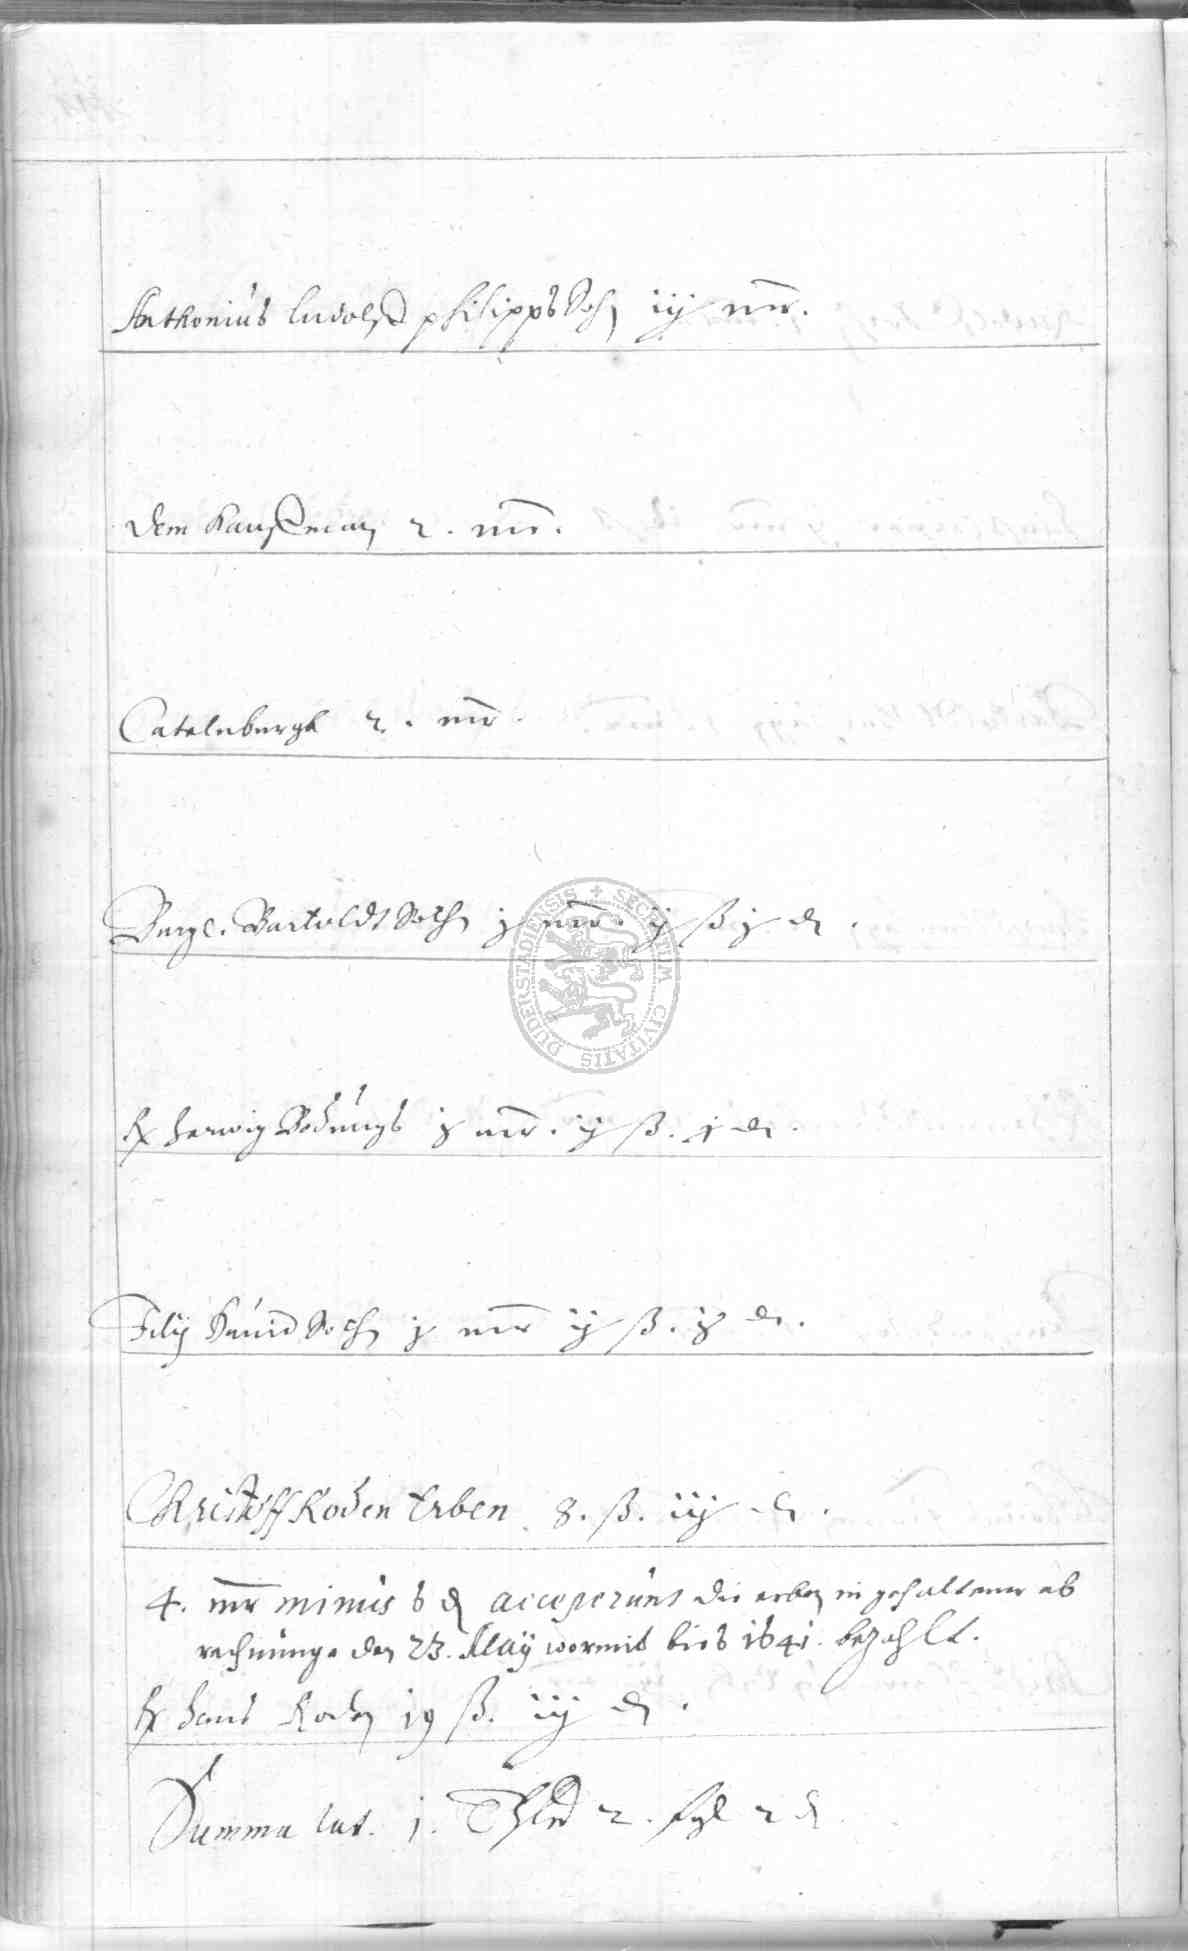 Anthonius Ludolff philipps Sohn iij mr.
Dem Kauffman 2. mr.
Catelnburgk 2. mr.
Burge. Bartoldt j mr. ij ß j d.
H Herwig Bodungs j mr. ij ß. j d.
Filij j mr ij ß. d.
Christoff Koden Erben 8. ß. iij d.
4. mr minus 6 d acceperunt die erben in gehaltener ab
rechnunge den 23. May wormit bies 1641. bezahlt.
H Hans Koden 19 ß. iij d.
Summa lat. j. Thlr 2. 2 d
DUDERSTADIENSIS + SECRETUM CIVITATIS